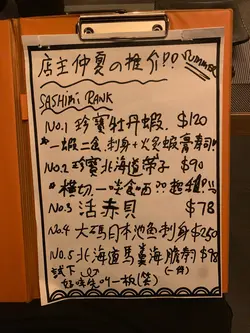 店主仲夏の推介!! SUMMER
SASHIMI RANK
No.1 珍寶牡丹蝦. $120
一蝦二食. 刺身+火炙蝦膏寿司
No.2 珍寶北海道帶子 $90
橫切 一啖食晒?? 起雞!!!
No.3 活赤貝 $78
No.4 大碼日本池魚刺身 $250
No.5 北海道馬糞海胆刺身 $98
(一件)
試下
好味先叫一板(笑)